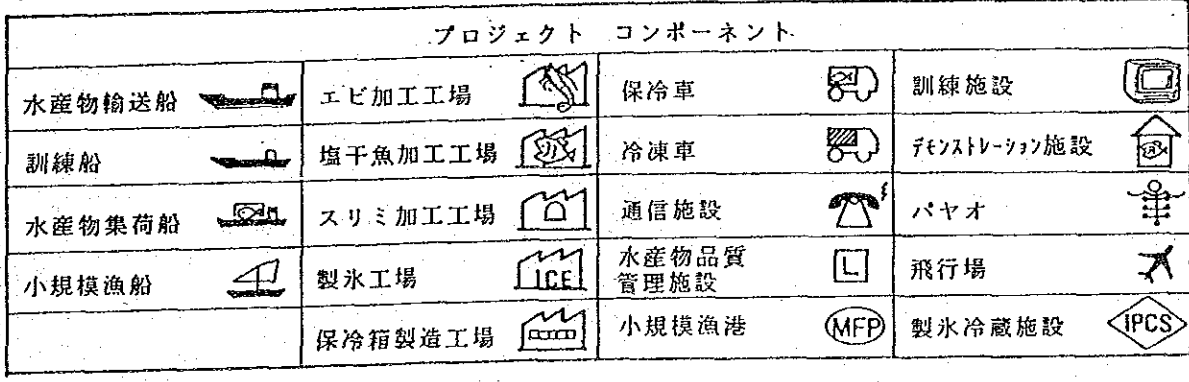 プロジェクト コンポーネント
水産物輸送船
エビ加工工場
保冷車
訓練施設
訓練船
塩干魚加工工場
冷凍車
デモンストレーション施設
水産物集荷船
スリミ加工工場
通信施設
パヤオ
小規模漁船
製氷工場
ICE
水産物品質
管理施設
L
飛行場
保冷箱製造工場
小規模漁港
MFP
製氷冷蔵施設
IPCS